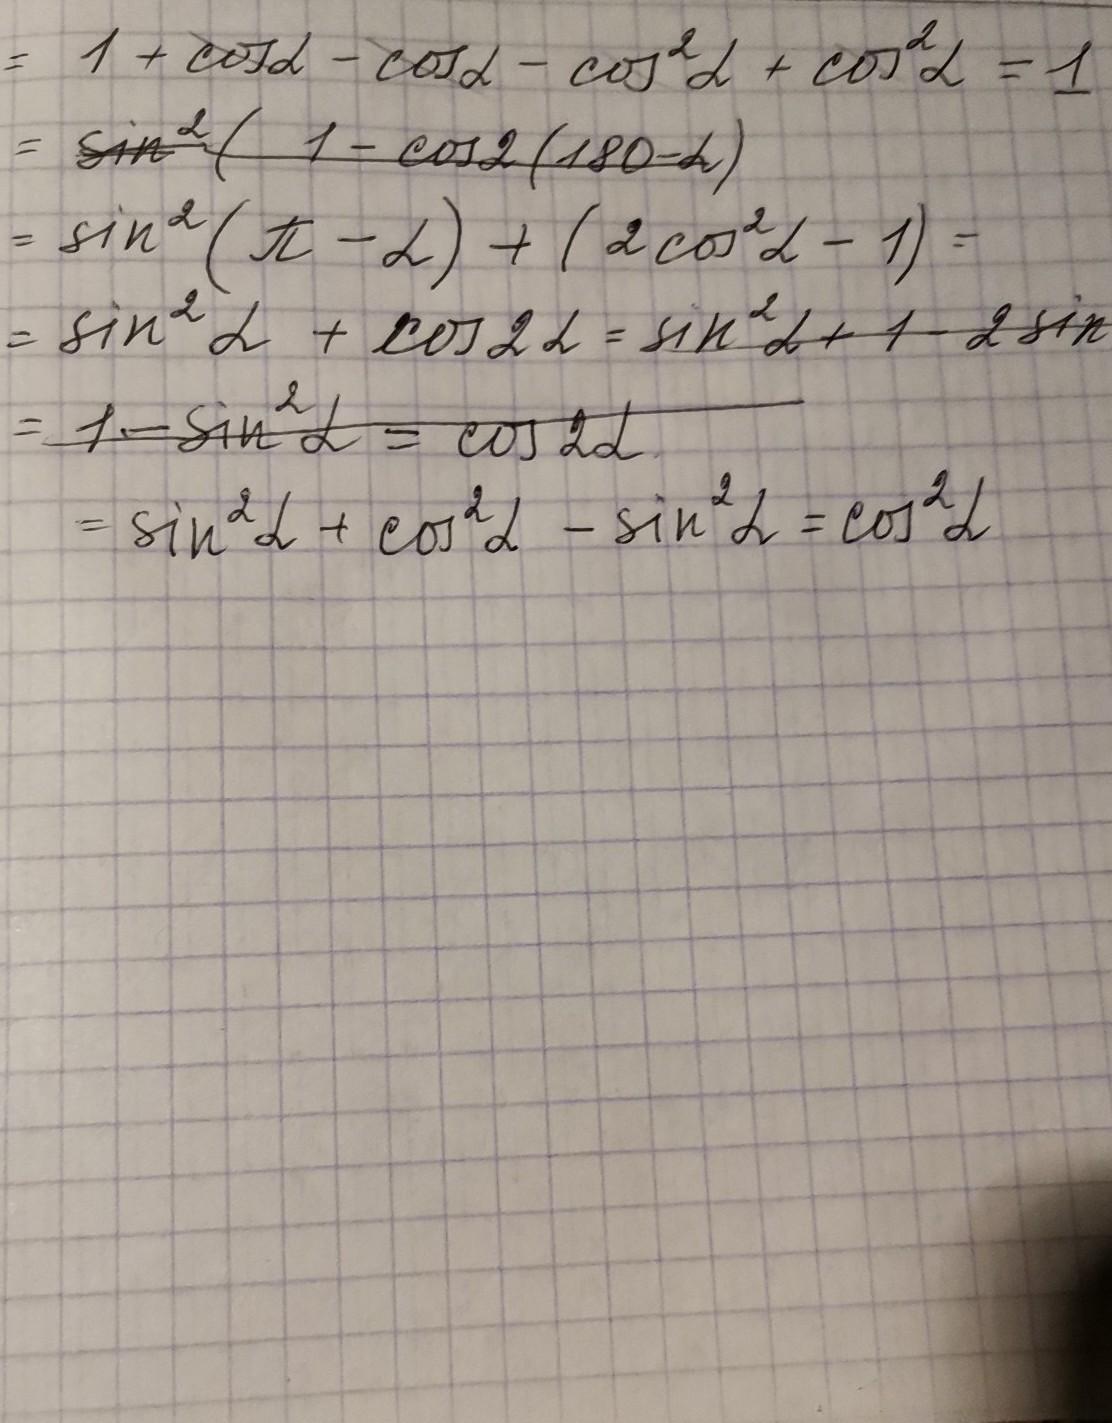 = 1 + cosα - cosα - cos²α + cos²α = 1
= sin²( 1 - cos2(180-α)
= sin²(π - α) + (2cos²α - 1) =
= sin²α + cos2α = sin²α + 1 - 2sin
= 1 - sin²α = cos2α
= sin²α + cos²α - sin²α = cos²α